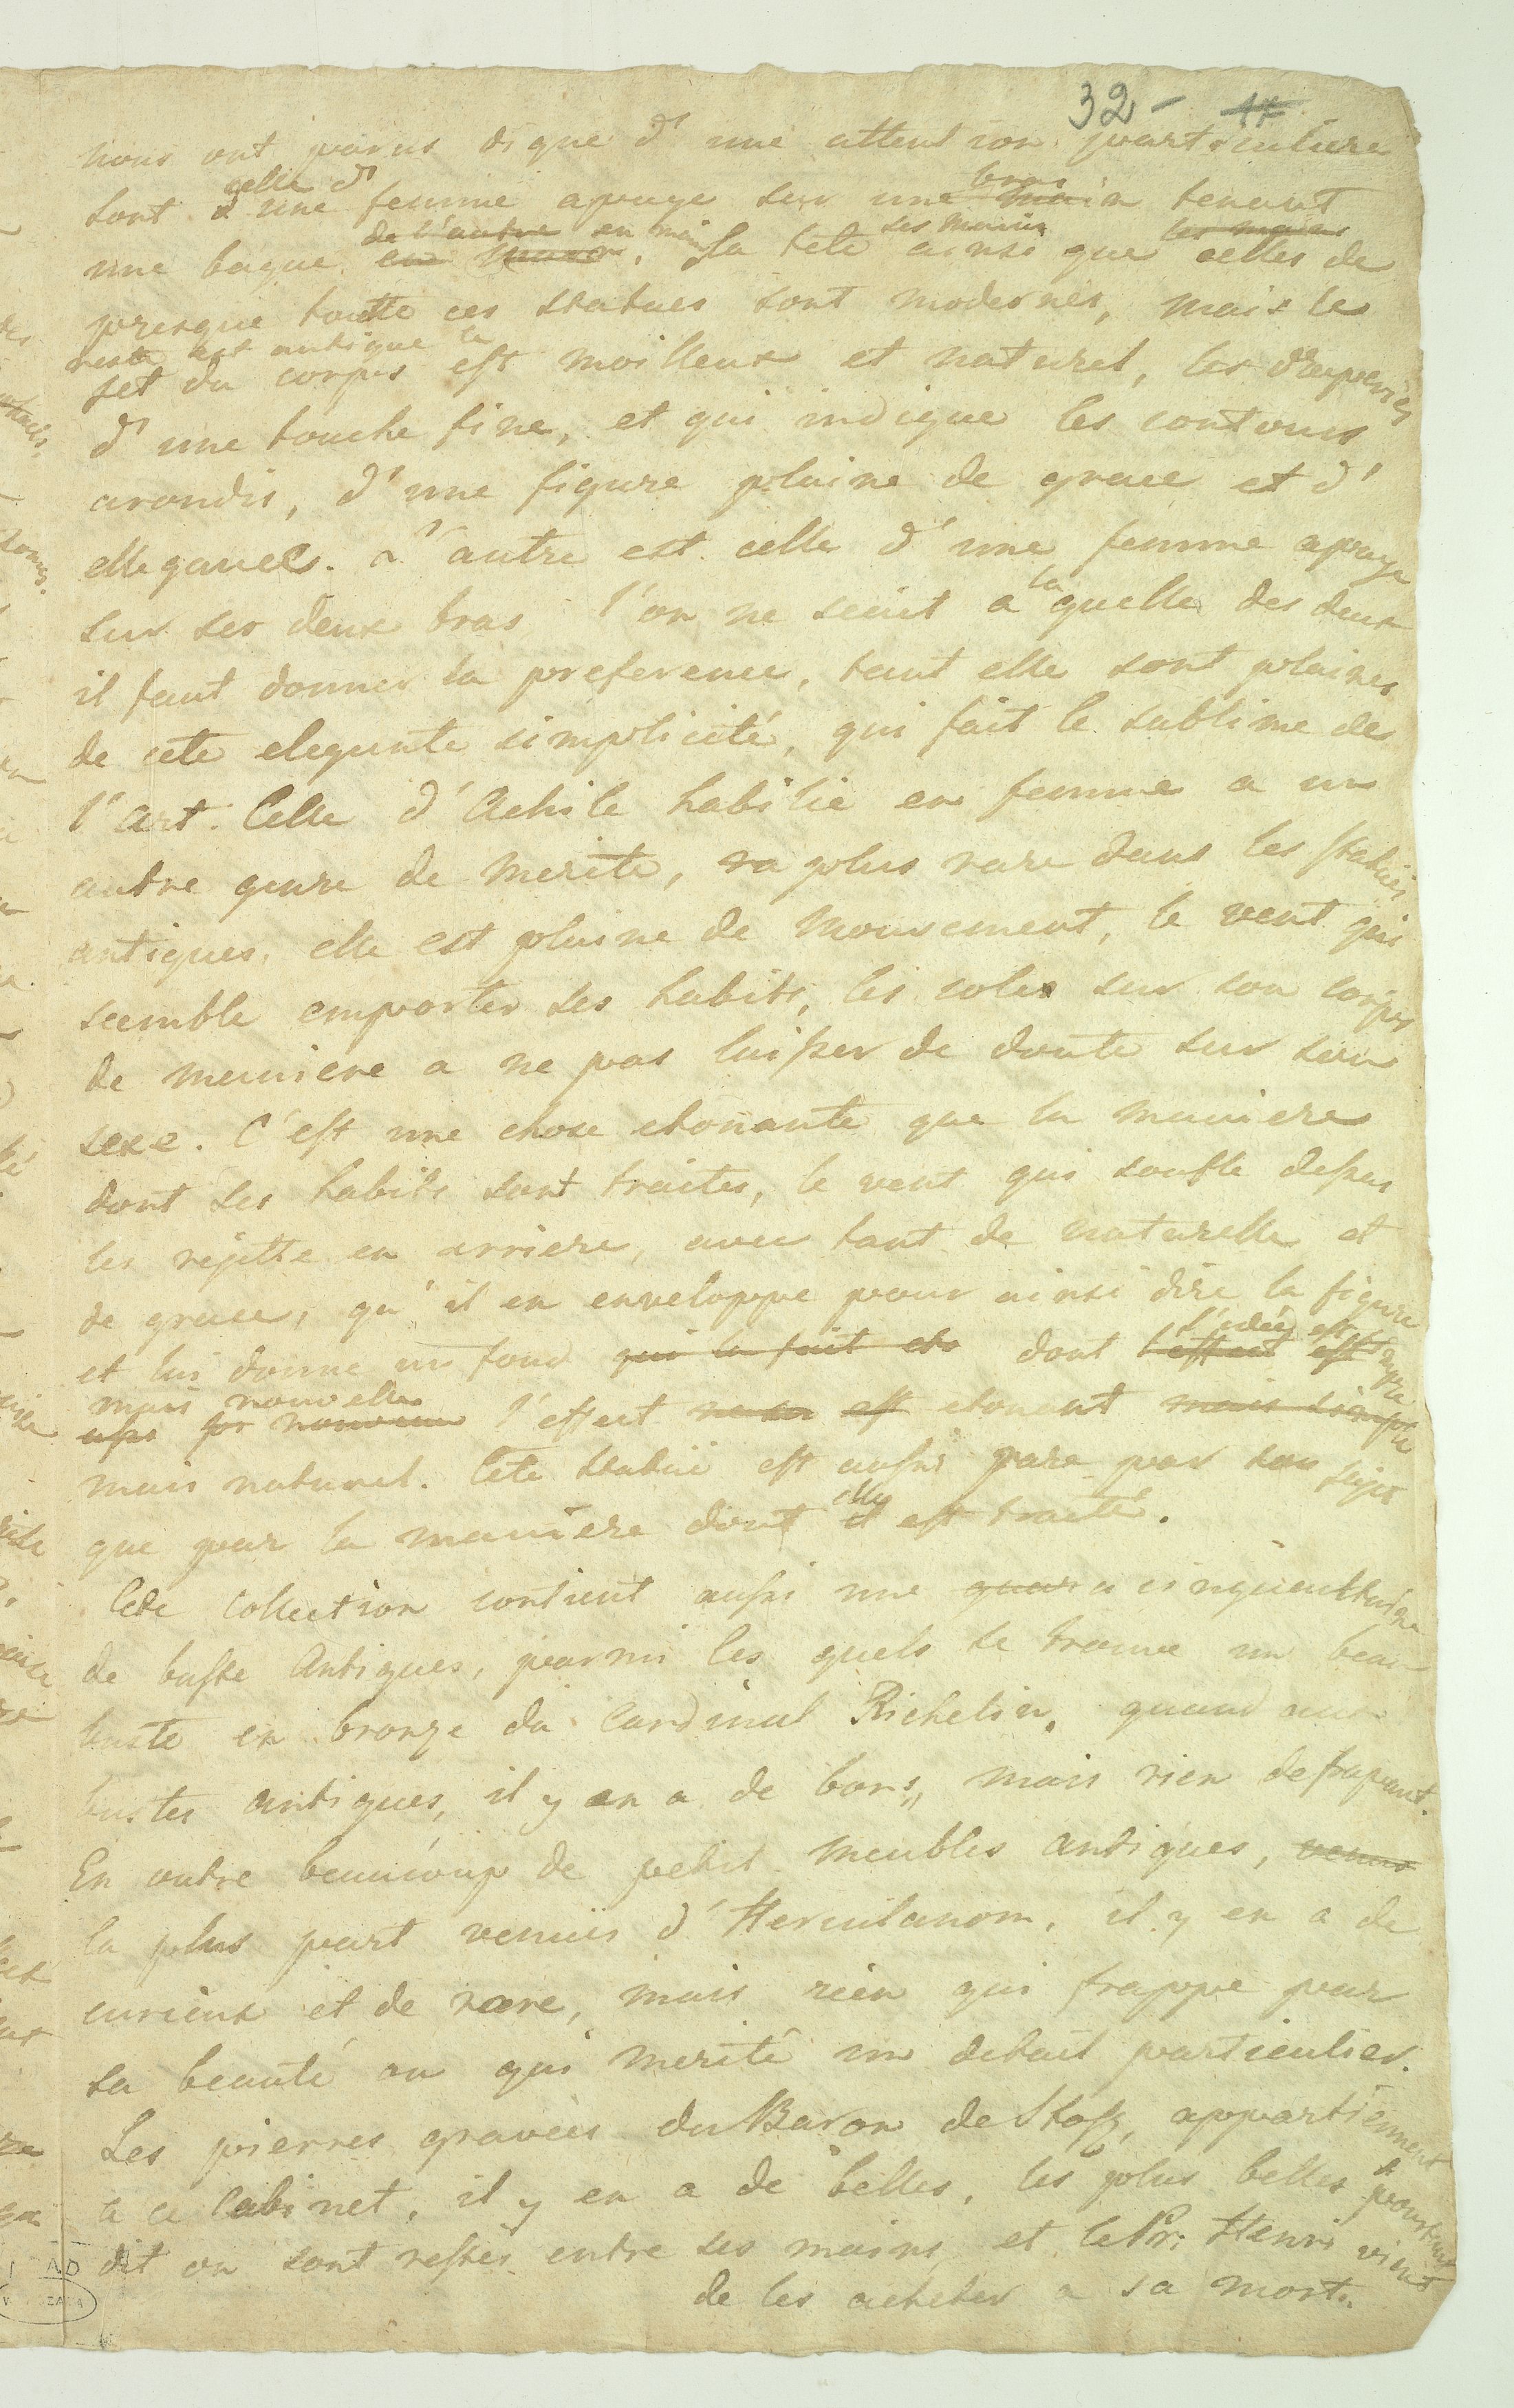 32 - 17
nous ont parus digne d' une attention particuliere
sont celle d' une femme apuye sur une bras main tenant
une bague de l'autre en main en main, la tete ainsi que ses mains les mains celles de
presque toutte ces statues sont modernes, mais le
reste est antique le
jet du corps est moilleux et naturel, les draperies
d' une touche fine, et qui indique les contours
arondis, d' une figure plaine de grace et d'
ellegance. L' autre est celle d' une femme apuye
sur ses deux bras l'on ne scait a la quelle des deux
il faut donner la preference, tant elle sont plaines
de cete elegante simplicité, qui fait le sublime de
l'art. Celle d'Achile habilie en femme a un
autre genre de merite, plus rare dans les statues
antiques, elle est plaine de mouvement, le vent qui
scemble emporter ses habits, les coles sur son corps
de meniere a ne pas laisser de doute sur son
sexe. C'est une chose etonante que la maniere
dont ses habits sont traites, le vent qui soufle
les rejette en arriere, avec tant de naturelle et
de grace, qu' il en enveloppe pour ainsi dire la figure
et lui donne un fond qui la fait dont l'idée est l'effect est simple
mais nouvelle
nouveau l'effect est etonant mais simple
mais naturel. Cete statue est aussi rare par son sujet
que par la maniere dont elle il est traité.
Cete Collection contient aussi une cinquanttaine
de buste Antiques, parmi les quels se trouve un beau
buste en bronze du Cardinal Richelin, quand aux
bustes antiques, il y en a de bons, mais rien de frapant.
En outre beaucoup de petit meubles antiques, venus
la plus part venues d' Herculanom, il y en a de
curieux et de rare, mais rien qui frappe par
sa beauté ou qui merite un detail particulier.
Les pierres gravées du Baron de Stosz, appartiennent
a ce Cabinet, il y en a de belles, les plus belles a pourtant
dit on sont restés entre ses mains, et le Pr: Henri vient
de les acheter a sa mort.